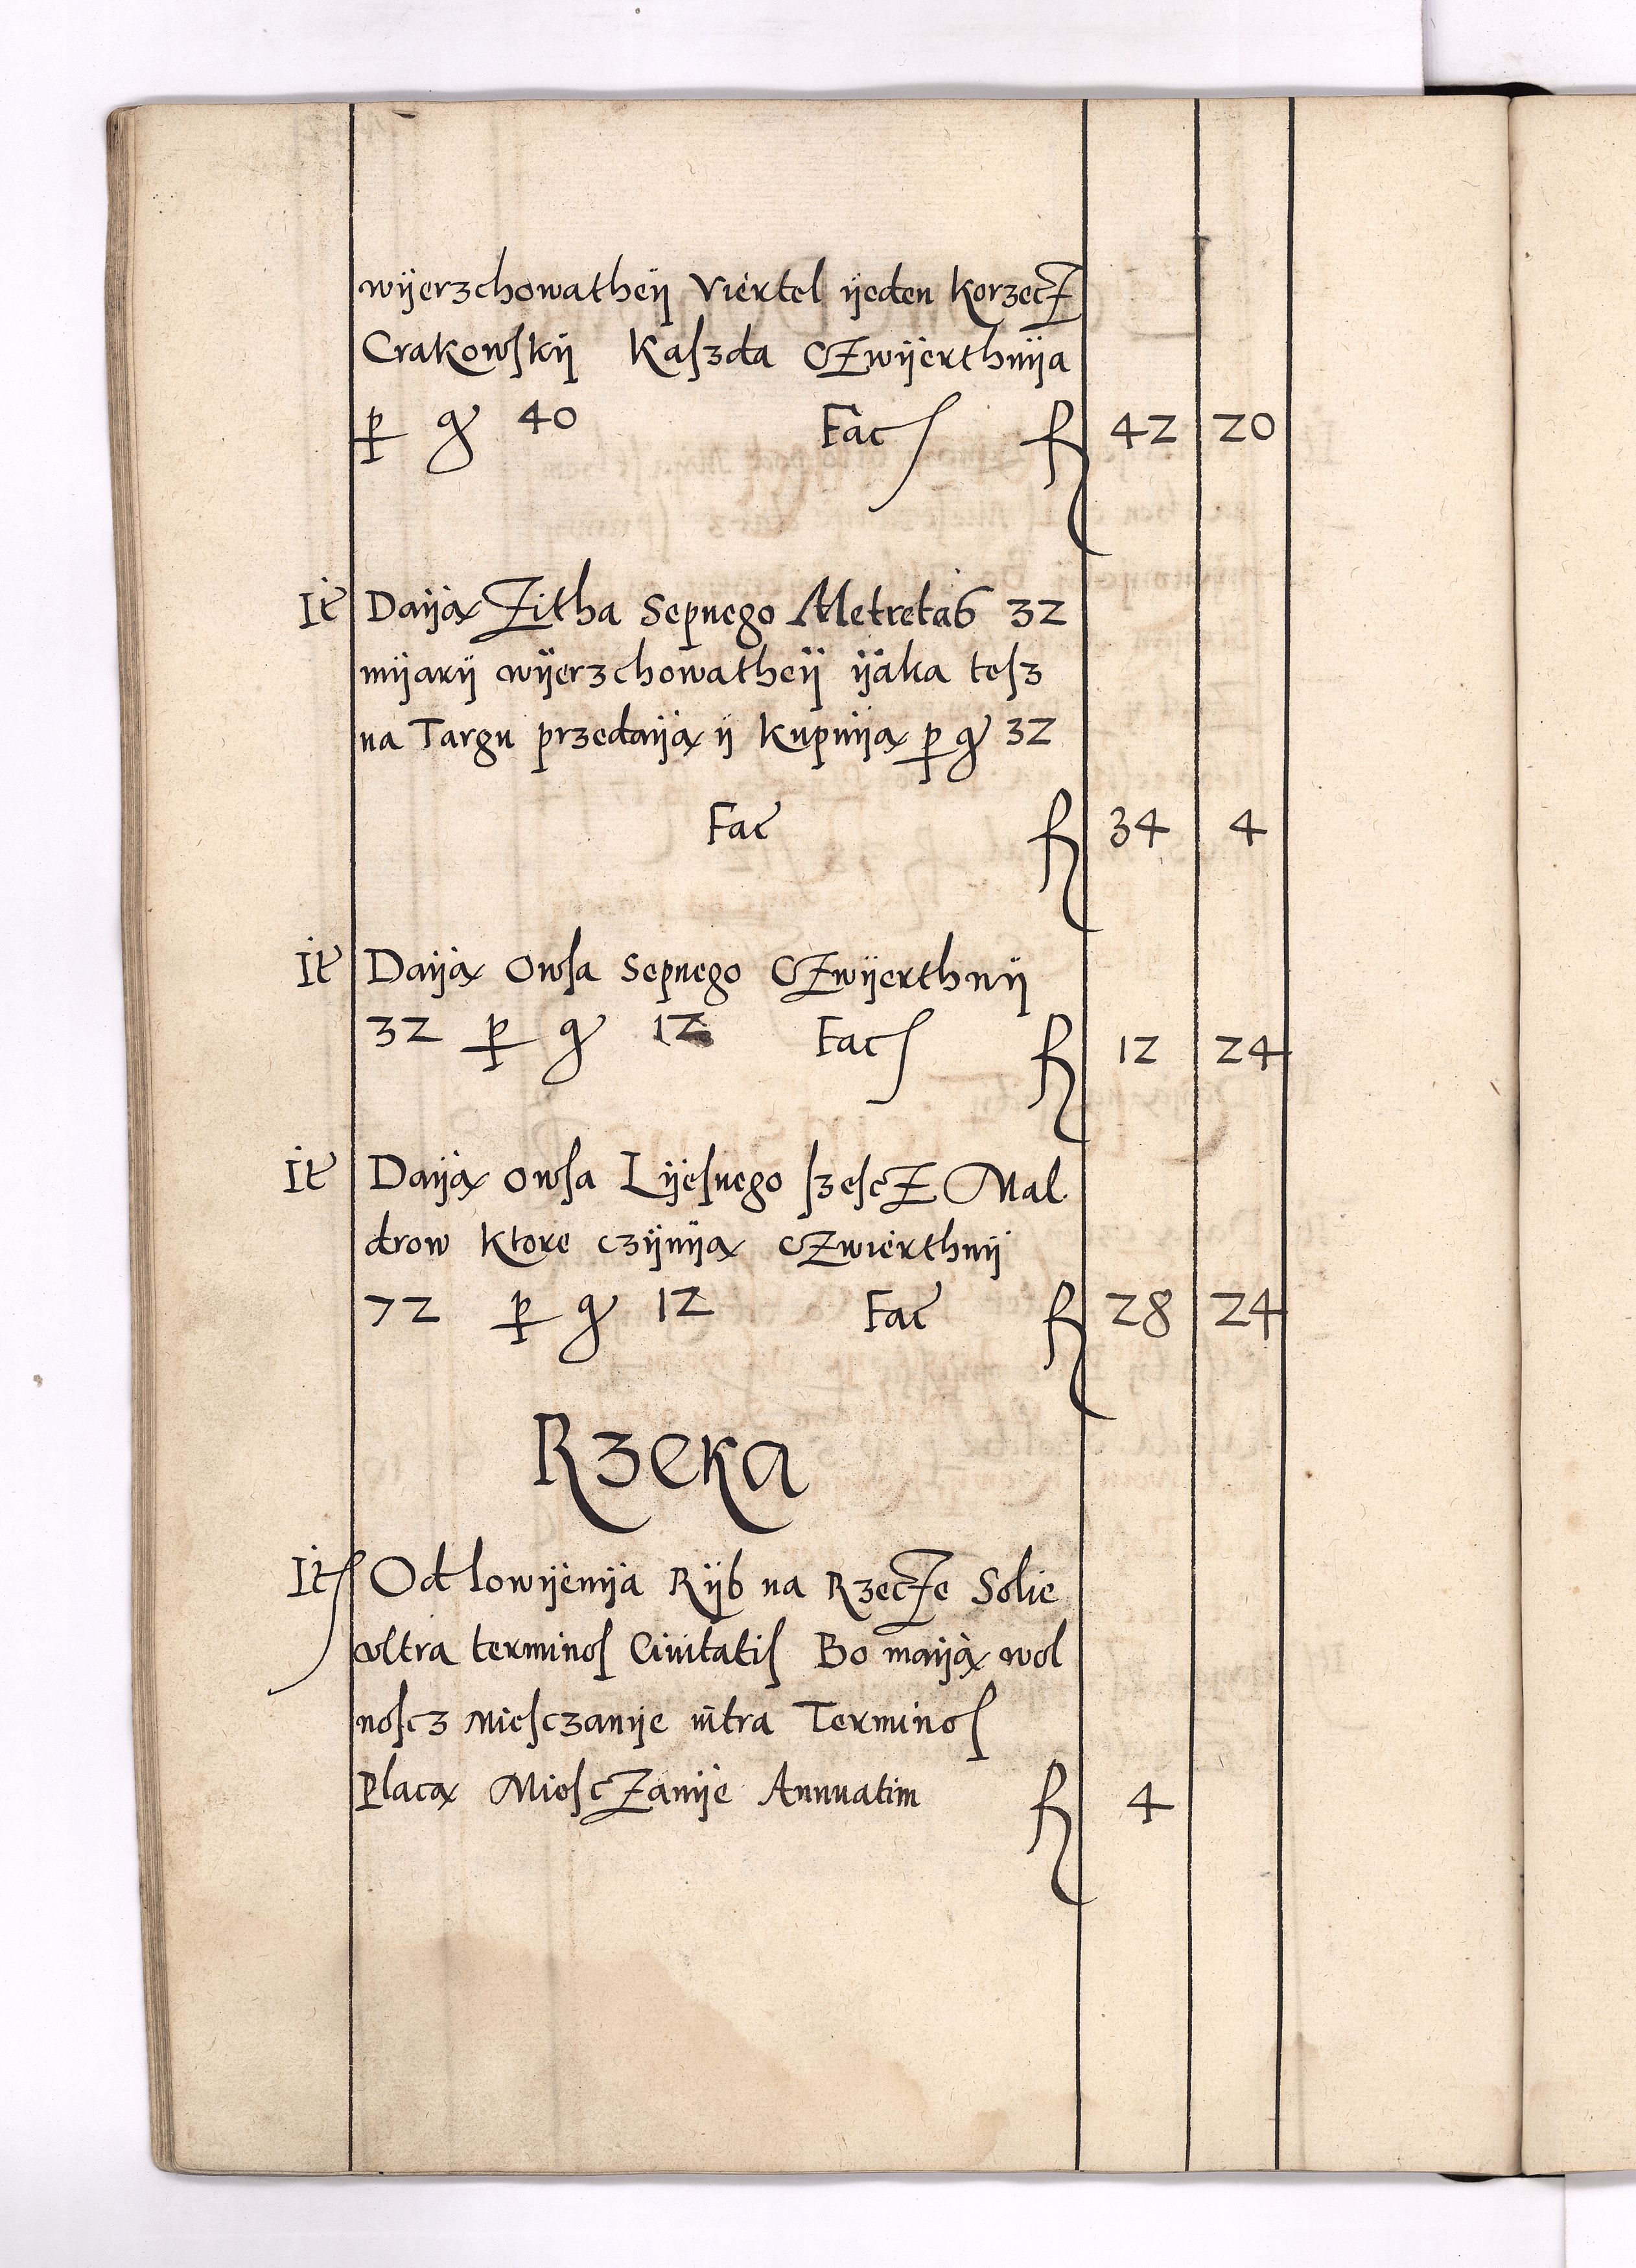 wijerzchowatheij Viertel ijeden korzecZ
Crakowskij Kaszda CZwijerthnija
p gr 40 Fac fl 42 20
It Daiją Zitha Sepnego Metretas 32
mijarij wijerzchowatheij ijaka tesz
na Targu przedaiją ij kupuiją p gr 32
Fac fl 34 4
It Daiją Owsa Sepnego CZwijerthnij
32 p gr 12 Fac fl 12 24
It Daiją owsa Lijesnego szescZ Mal
drow ktore czijniją CZwierthnij
72 p gr 12 Fac fl 28 24
Rzeka
It Od lowijenija Rijb na RzecZe Solie
vltra terminos Ciuitatis Bo maiją wol
noscz Miesczanije intra Terminos
Placą MiescZanije Annuatim fl 4